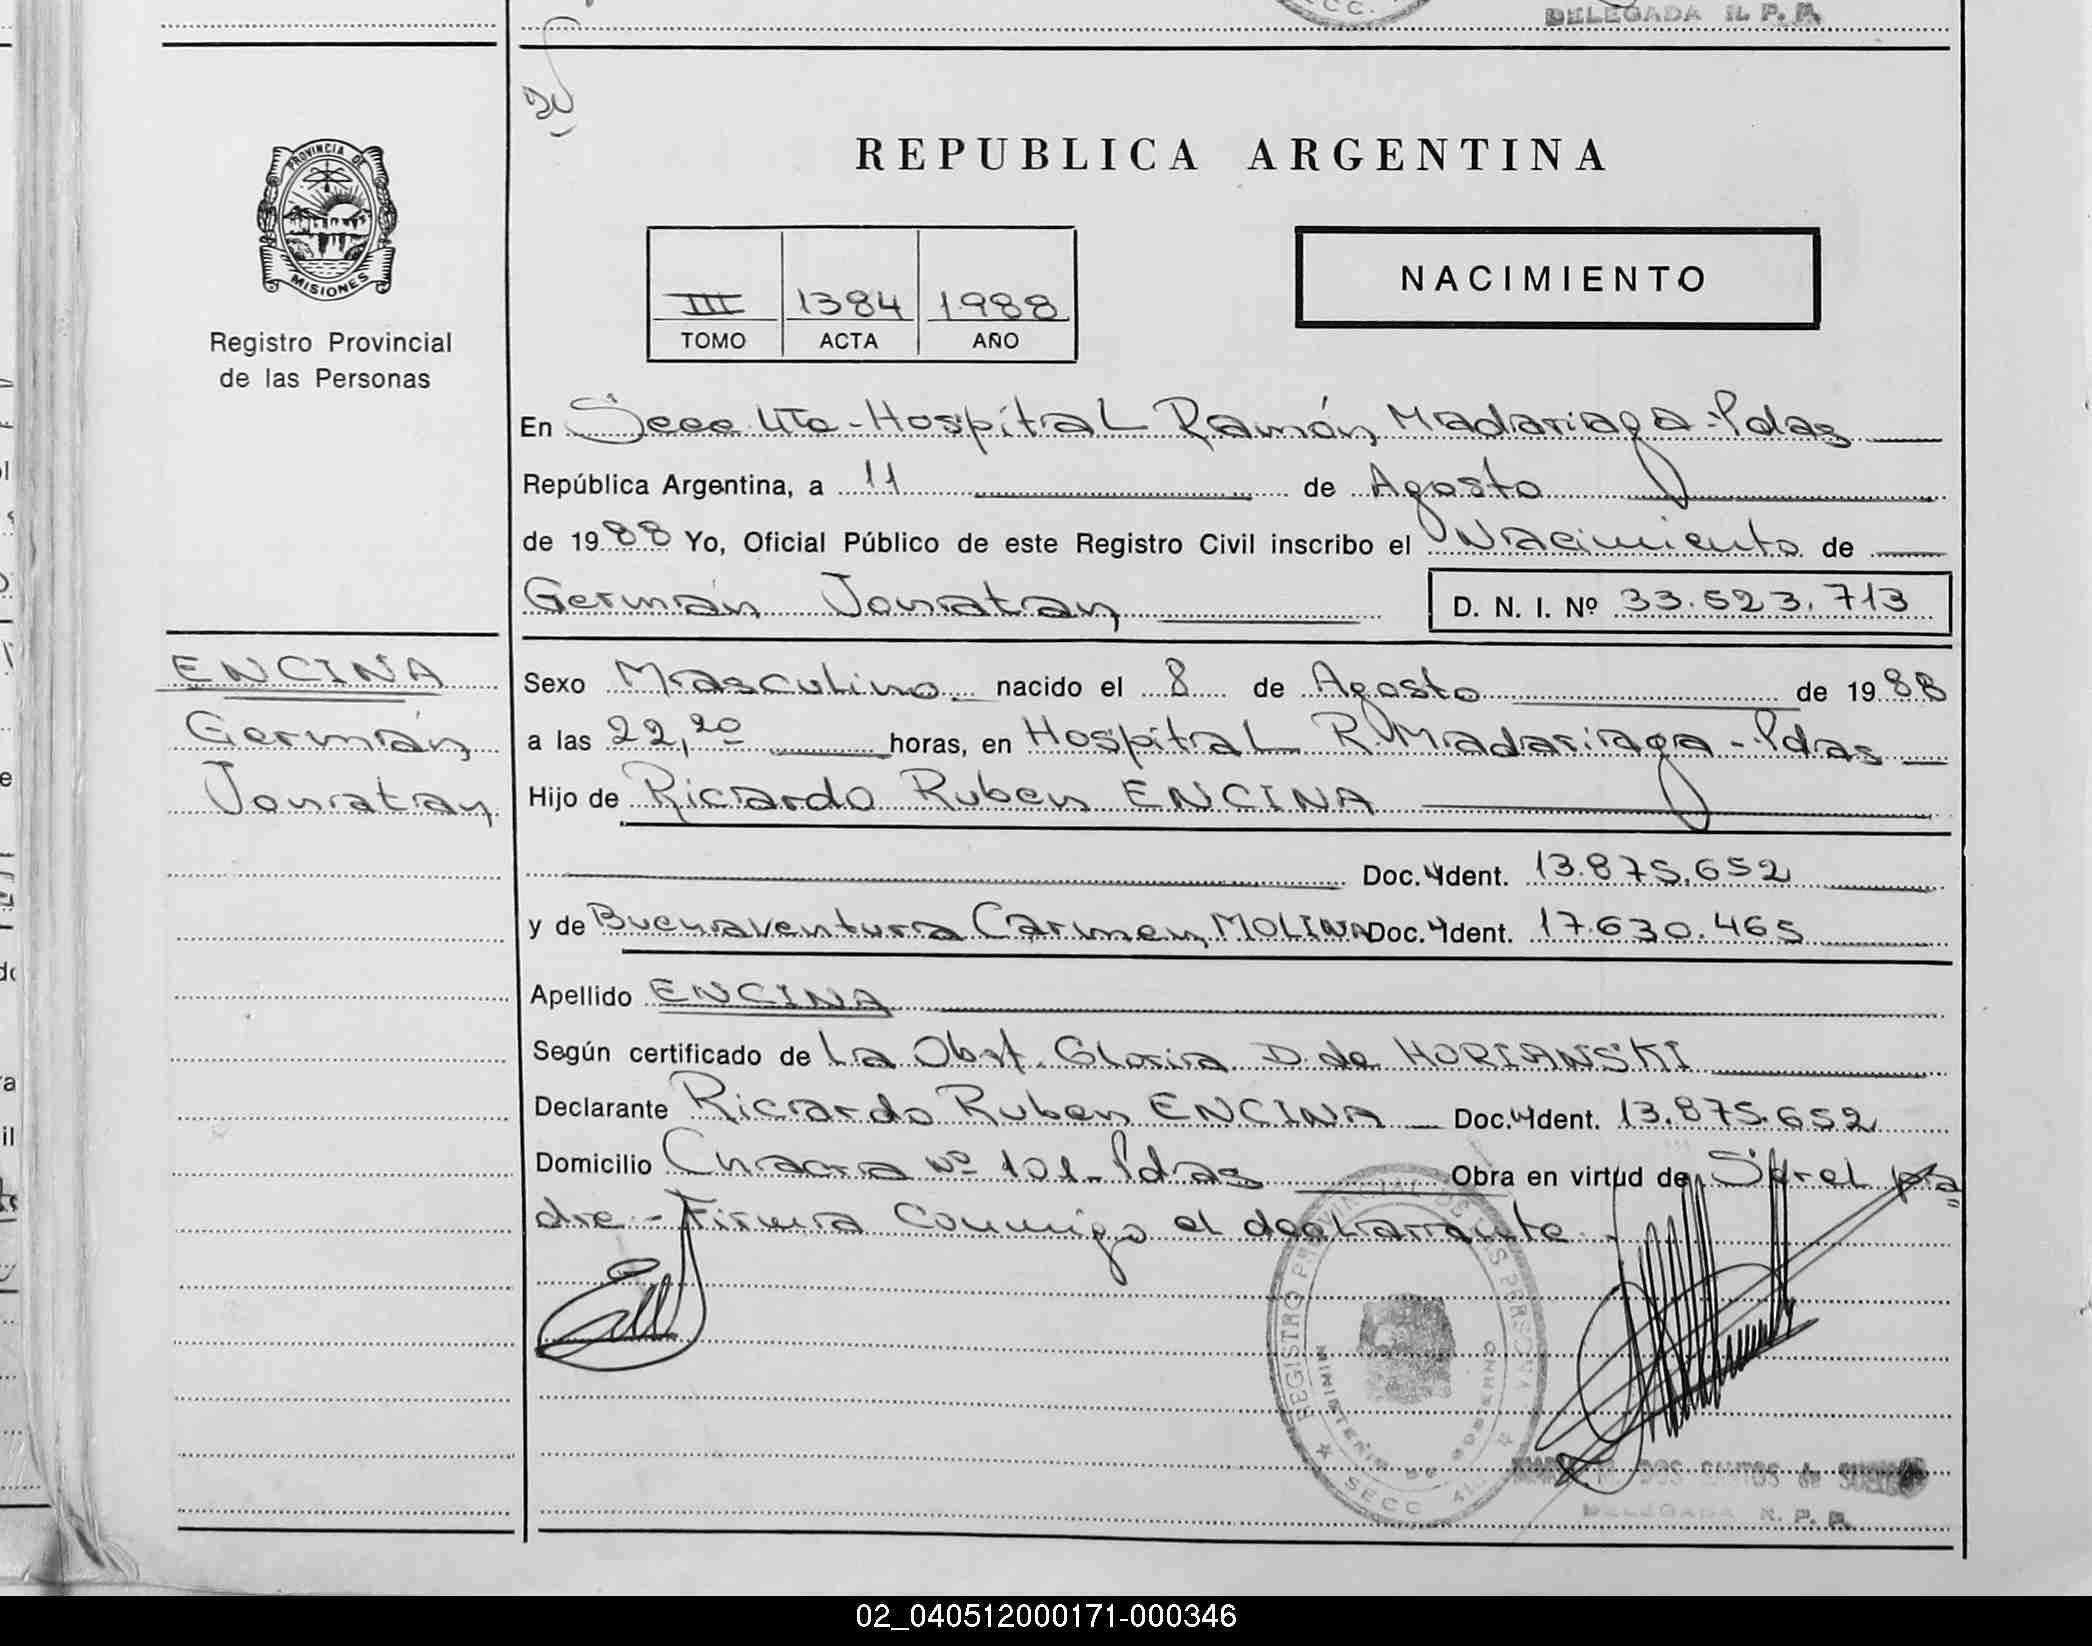 DELEGADA R. P. P.
REPUBLICA ARGENTINA
PROVINCIA DE
MISIONES
Registro Provincial
de las Personas
III 1384 1988
TOMO ACTA AÑO
NACIMIENTO
En Secc 4ta - Hospital Ramón Madariaga - Pdas
República Argentina, a 11 de Agosto
de 1988 Yo, Oficial Público de este Registro Civil inscribo el Nacimiento de
Germán Jonatan D. N. I. Nº 33.523.713
ENCINA
Germán
Jonatan
Sexo Masculino nacido el 8 de Agosto de 1988
a las 22,20 horas, en Hospital R. Madariaga - Pdas
Hijo de Ricardo Ruben ENCINA
Doc. Ident. 13.875.652
y de Buenaventura Carmen MOLINA Doc. Ident. 17.630.465
Apellido ENCINA
Según certificado de La Obst. Gloria D. de HORIANSKI
Declarante Ricardo Ruben ENCINA Doc. Ident. 13.875.652
Domicilio Chacra Nº 101 - Pdas Obra en virtud de S/rel pa
dre - Firma Conmigo el declarante
REGISTRO PROVINCIAL DE LAS PERSONAS
MINISTERIO DE GOBIERNO
SECC 4
DOS SANTOS de
DELEGADA R. P. P.
02_040512000171-000346